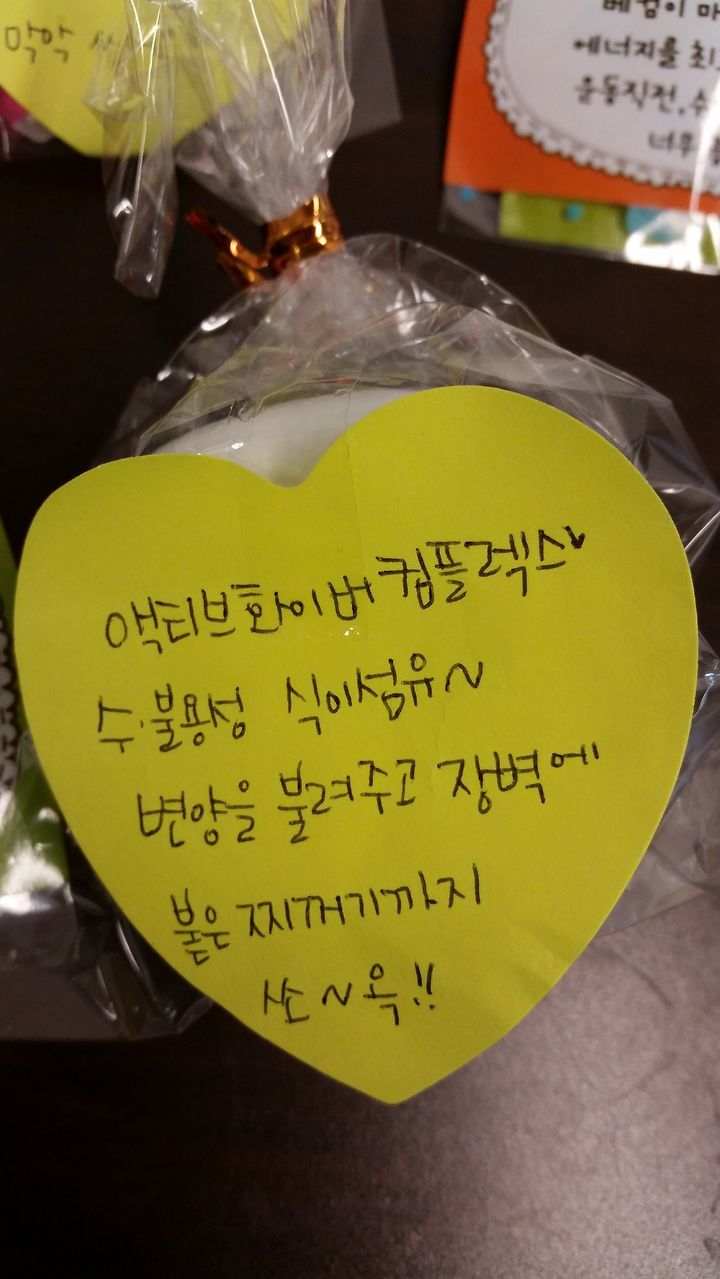 막막
베컴이 마
에너지를 최
운동직전, 수
너무
액티브화이버컴플렉스♥
수·불용성 식이섬유~
변양을 불려주고 장벽에
붙은 찌꺼기까지
쏘~옥!!